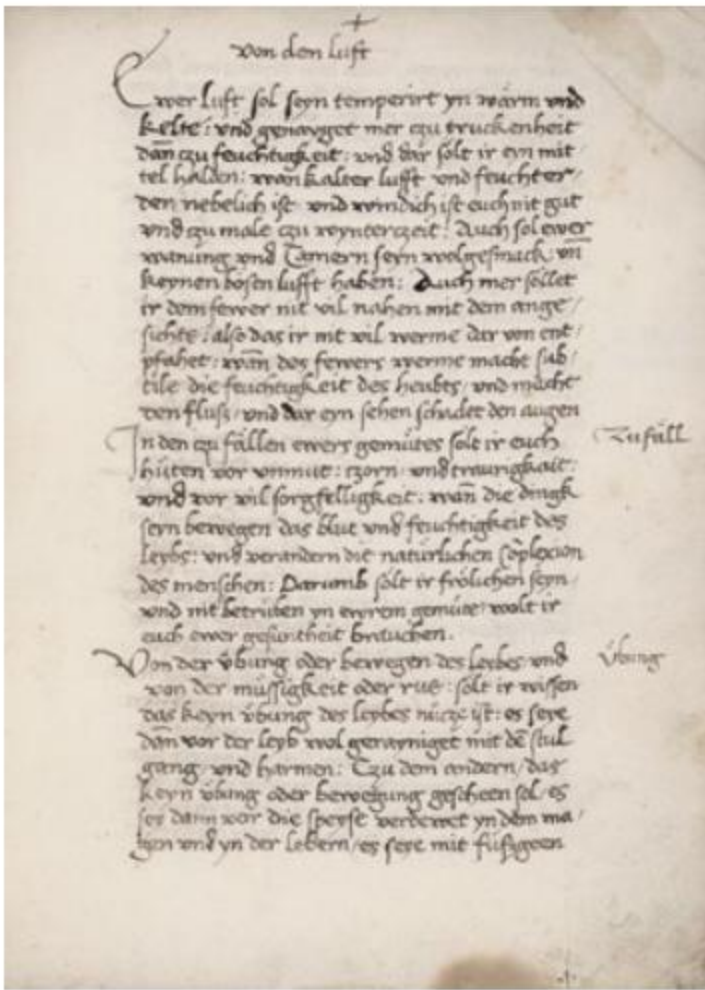 von den luft
Ewer luft sol seyn temperirt yn wärm vnd
kelte: vnd genayget mer czu truckenheit
dan̄ czu feuchtigkeit: vnd dar solt ir eyn mit/
tel halden: wan kalter lufft vnd feuchter/
den nebelich ist vnd windich ist euch nit gut
vnd czu male czu wynterczeit: Auch sol ewer
wanung vnd Camern seyn wolgesmack: vn̄
keynen bösen lufft haben: Auch mer söllet
ir dem fewer nit vil nahen mit dem ange/
sichte: also das ir nit vil werme dar von ent/
pfahet: wan̄ des fewers werme macht sub/
tile die feuchtigkeit des heubts/ vnd macht
den fluss/ vnd dar eyn sehen schadet den augen
In den czu fällen ewers gemütes solt ir euch
Zufäll
hüten vor vnmut: czorn: vnd traurigkait:
vnd vor vil sorgfelligkeit: wan̄ die dingk
seyn bewegen das blut vnd feuchtigkeit des
leybs: vnd verandern die natürlichen co̅plexion
des menschen: Darumb solt ir frölichen seyn/
vnd nit betrüben yn ewrem gemüte/ wolt ir
euch ewer gesuntheit brauchen.
Von der übung oder bewegen des leybes/ vnd
Übung
von der müssigkeit oder rue: solt ir wissen
das keyn übung des leybes nücze ist: es seye
dan̄ vor der leyb wol gerayniget mit de̅ stul
gang/ vnd harmen: Czu dem andern/ das
keyn übung oder bewegung gescheen sol/ es
sey dann vor die speyse verdewet yn dem ma/
gen vnd yn der lebern/ es seye mit füssgeen